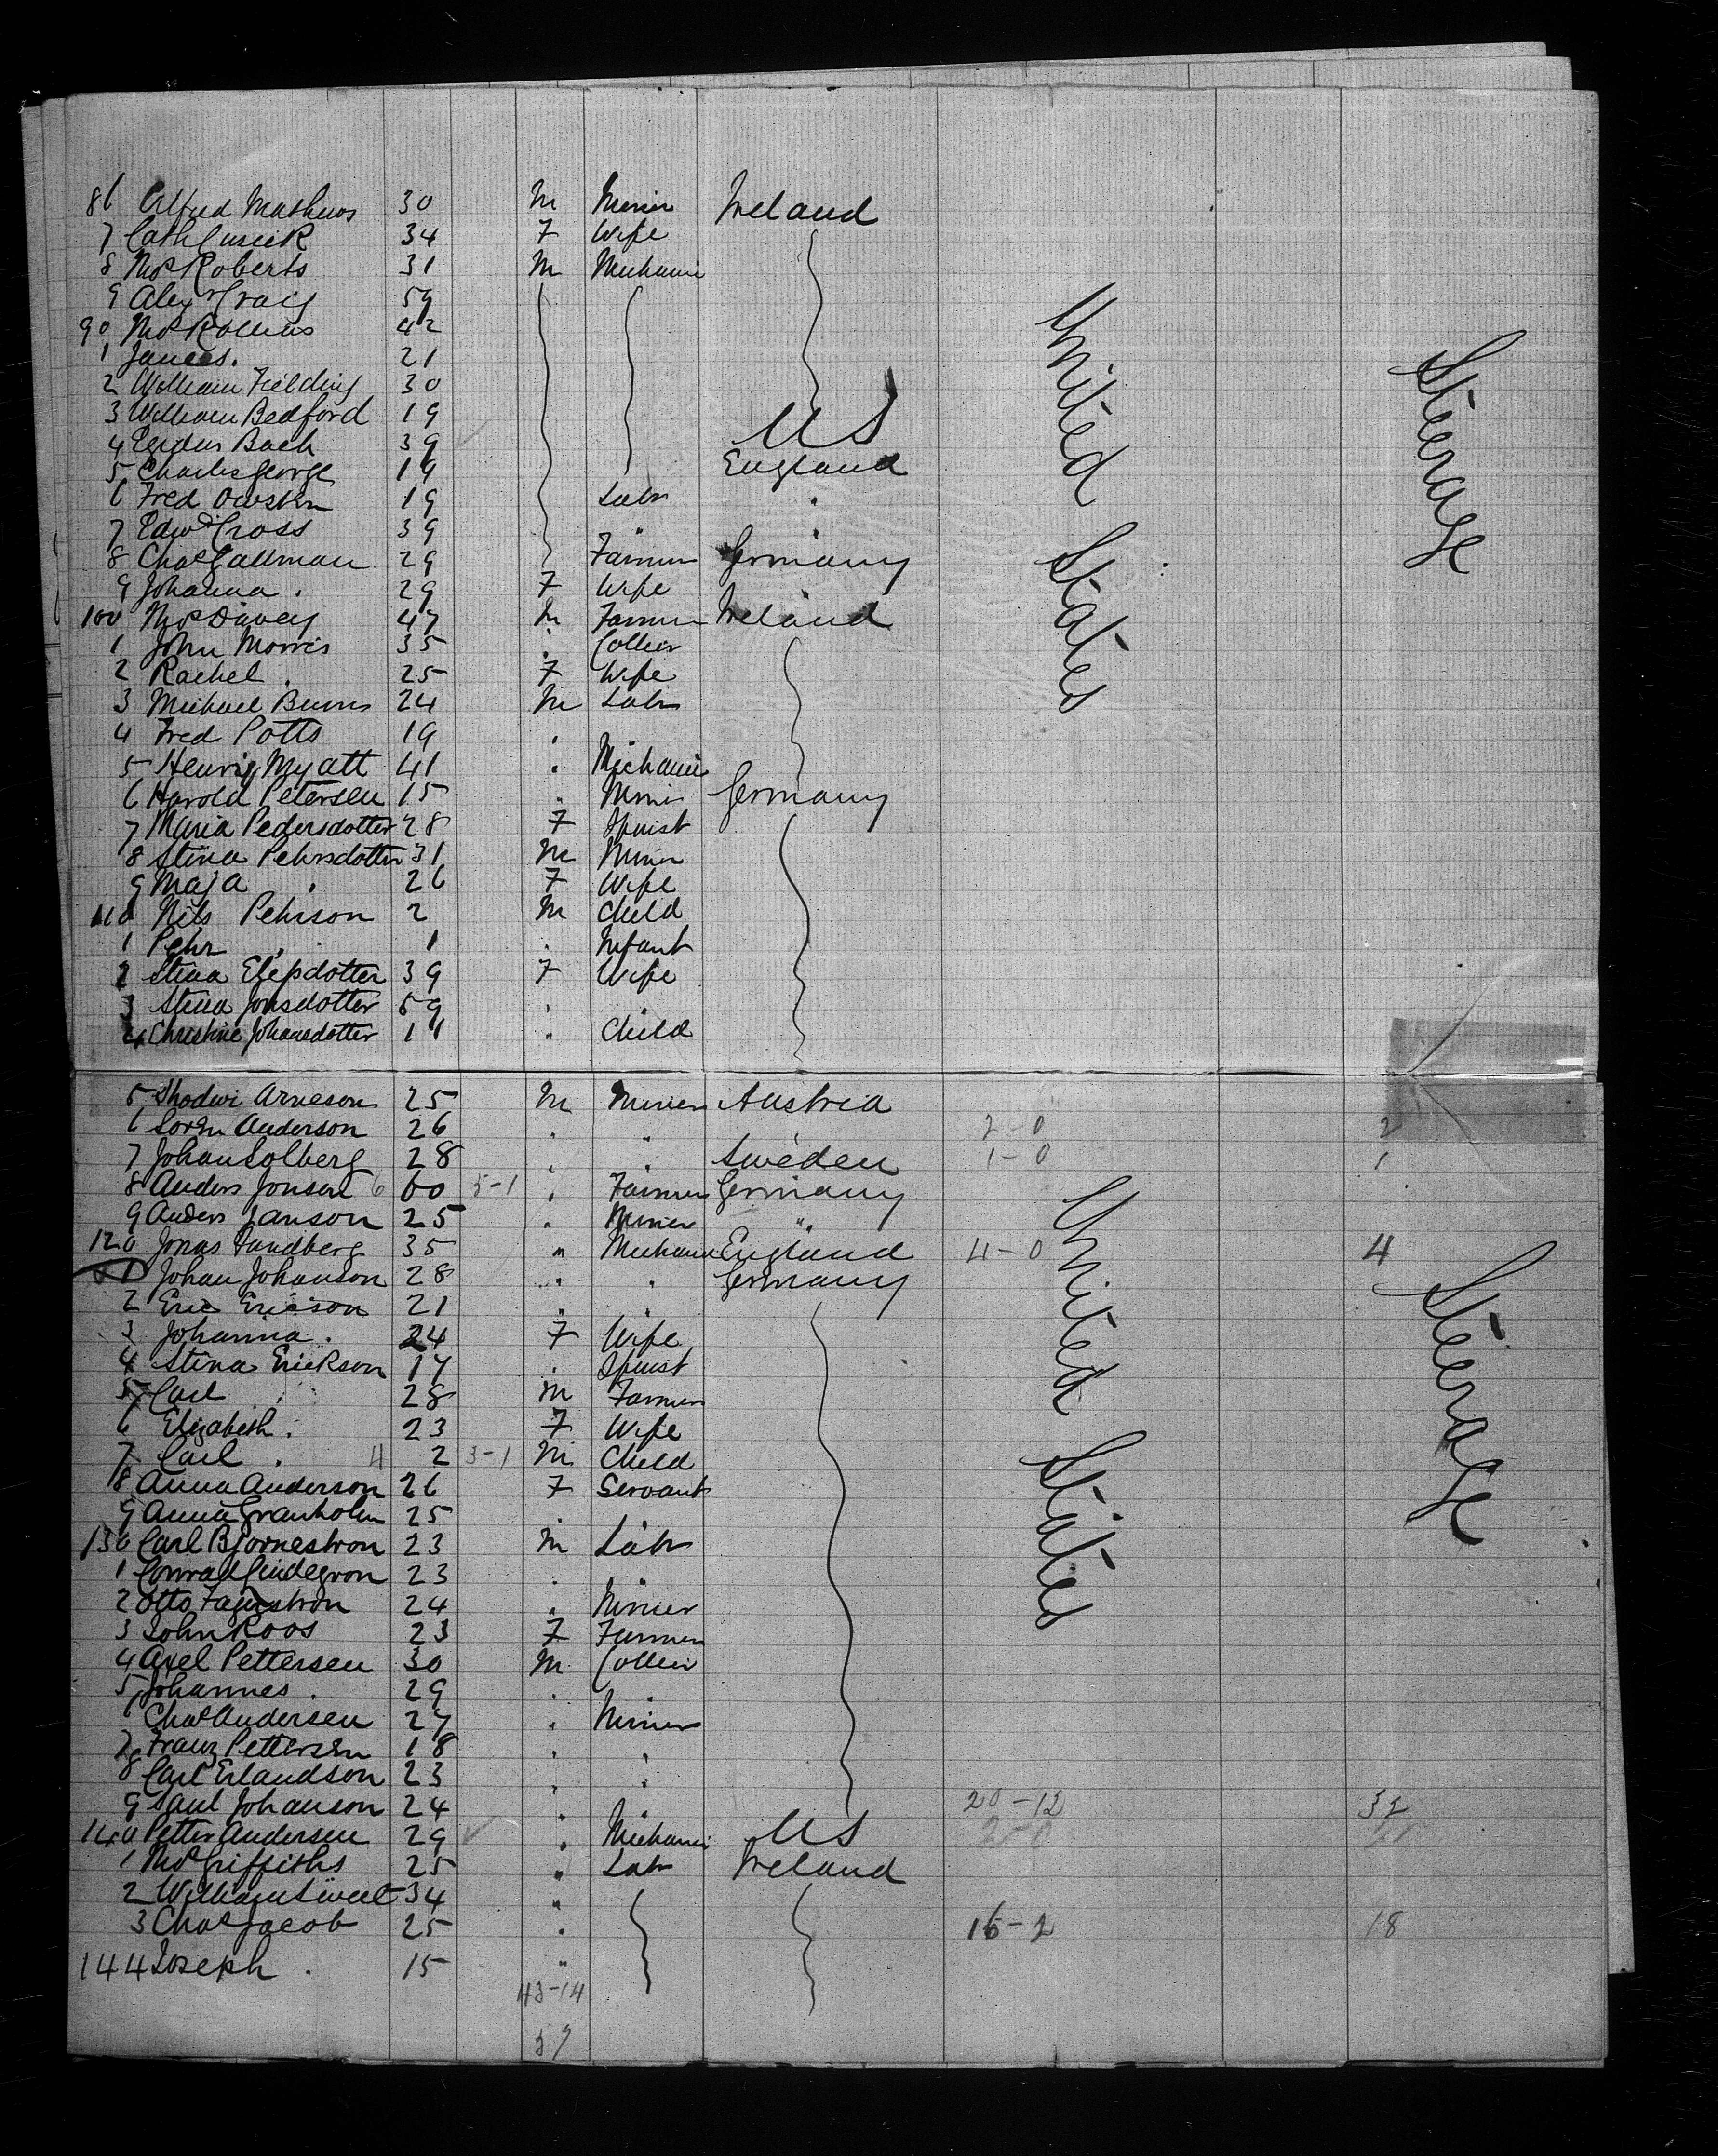 86 Alfred Mathews 30 M Miner Ireland
7 Cath Cusick 34 F Wife
8 Thos Roberts 31 M Mechanic
9 Alexr Craig 59
90 Thos Rollins 42
1 James . 21
2 William Fielding 30
3 William Bedford 19
4 Bach 39 U S
5 Charles George 19 England
6 Fred Owsten 19 Labr "
7 Edwd Cross 39 " "
8 Chas Callman 29 Farmer Germany
9 Johanna . 29 F Wife
100 Thos Davey 47 M Farmer Ireland
1 John Morris 35 " Collier
2 Rachel . 25 F Wife
3 Michael Burns 24 M Labr
4 Fred Potts 19 "
5 Henry Myatt 41 " Mechanic
6 Harold Petersen 15 " Miner Germany
7 Maria Pedersdotter 28 F Spinst
8 Stina Pehrsdotter 31 M Miner
9 Maja " 26 F Wife
110 Nils Pehrson 2 M Child
1 Pehr " 1 " Infant
2 Stina 39 F Wife
3 Stina Jonsdotter 59 "
4 Christine Johansdotter 11 " Child
United States
Steerage
5 Arneson 25 M Miner Austria
6 Soren Anderson 26 " " 2-0 2
7 Johan Solberg 28 " " Sweden 1-0 1
8 Anders Jonsen 6 60 5-1 " Farmer Germany
9 Anders Janson 25 " Miner "
120 Jonas Sundberg 35 " Mechanic England 4-0 4
1 Johan Johanson 28 " " Germany
2 Eric Ericson 21 " "
3 Johanna . 24 F Wife
4 Stina Erickson 17 " Spinst
5 Carl " 28 M Farmer
6 Elizabeth . 23 F Wife
7 Carl . 4 2 3-1 M Child
8 Anna Anderson 26 F Servant
9 Anna Granholm 25 "
130 Carl Bjornestron 23 M Labr
1 Conrad 23 "
2 Otto 24 " Miner
3 John Roos 23 F Farmer
4 Axel Pettersen 30 M Collier
5 Johannes . 29 "
6 Chas Andersen 27 " Miner
7 Franz Pettersen 18 " "
8 Carl Erlandson 23 " "
9 Johanson 24 " 20-12 32
140 Petter Andersen 29 " Mechanic U S 2-0
1 Thos Griffiths 25 " Labr Ireland
2 William Sweet 34 "
3 Chas Jacob 25 " 16-2 18
144 Joseph . 15 "
43-14
57
United States
Steerage